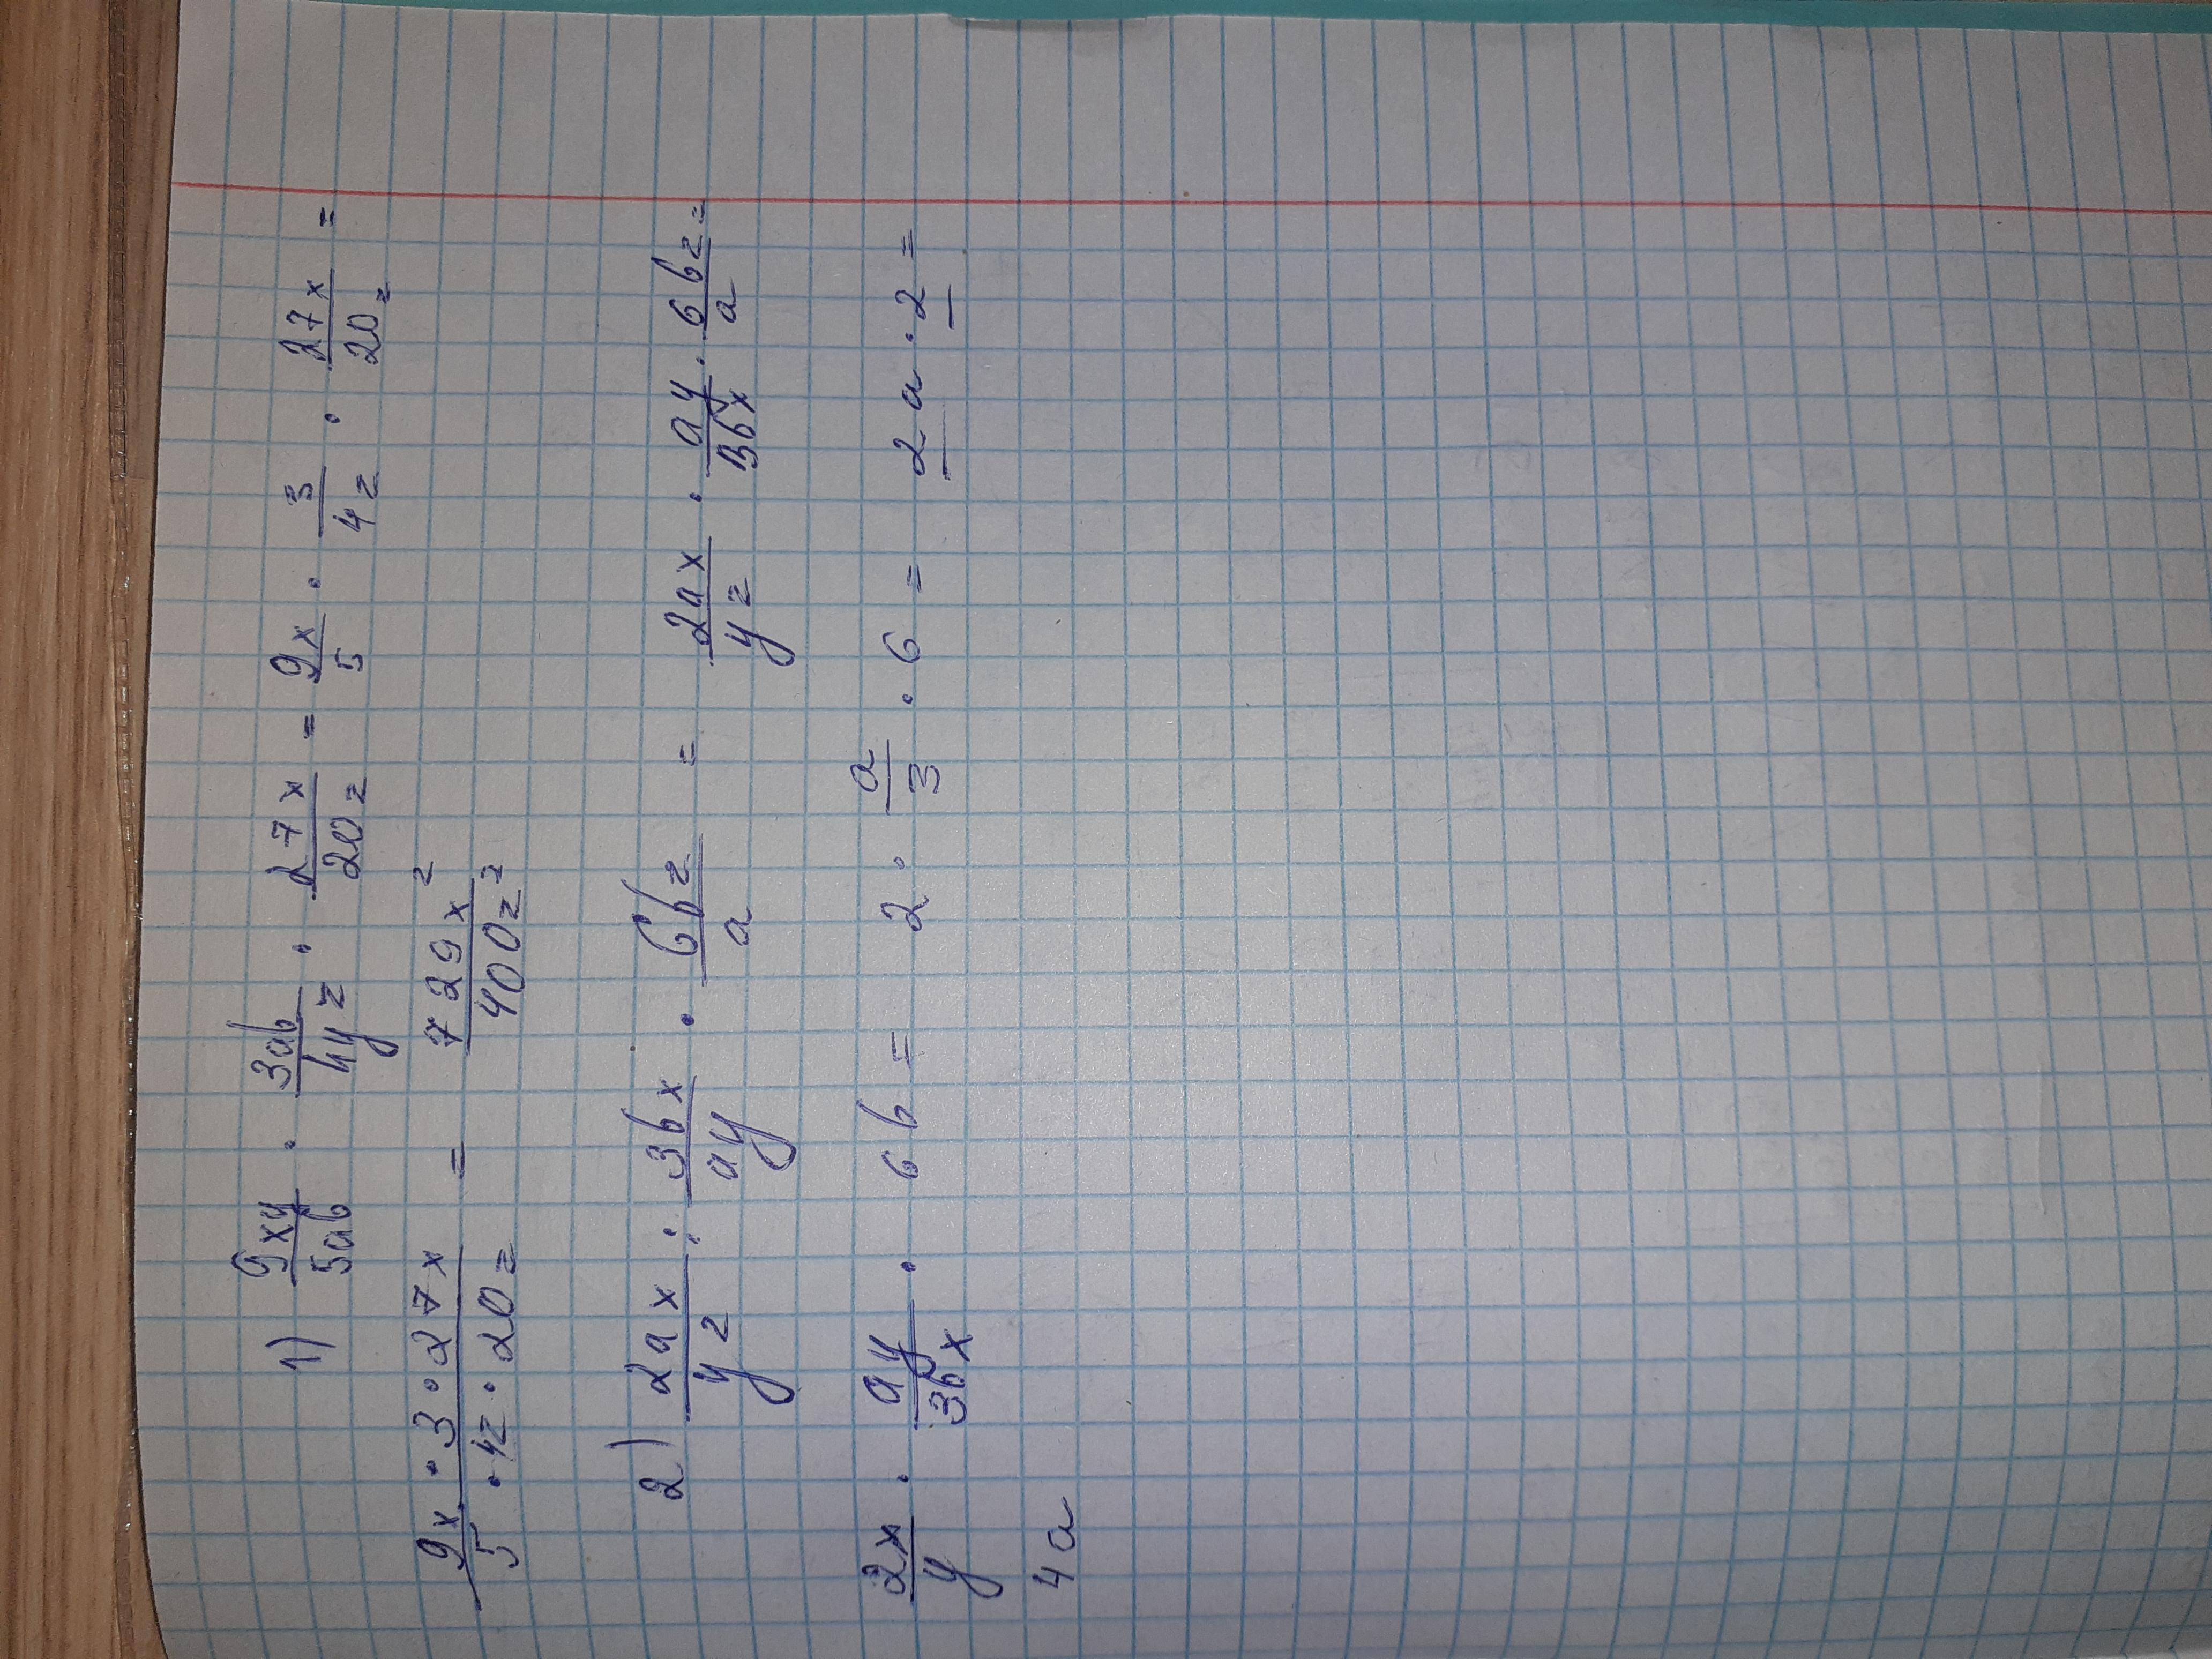 1) 9xy/5ab · 3ab/4yz · 27x/20z = 9x/5 · 3/4z · 27x/20z =
9x · 3 · 27x/5 · 4z · 20z = 729x²/400z²
2) 2ax/yz : 3bx/ay · 6bz/a = 2ax/yz · ay/3bx · 6bz/a =
2x/y · ay/3bx · 6b = 2 · a/3 · 6 = 2a · 2 =
4a